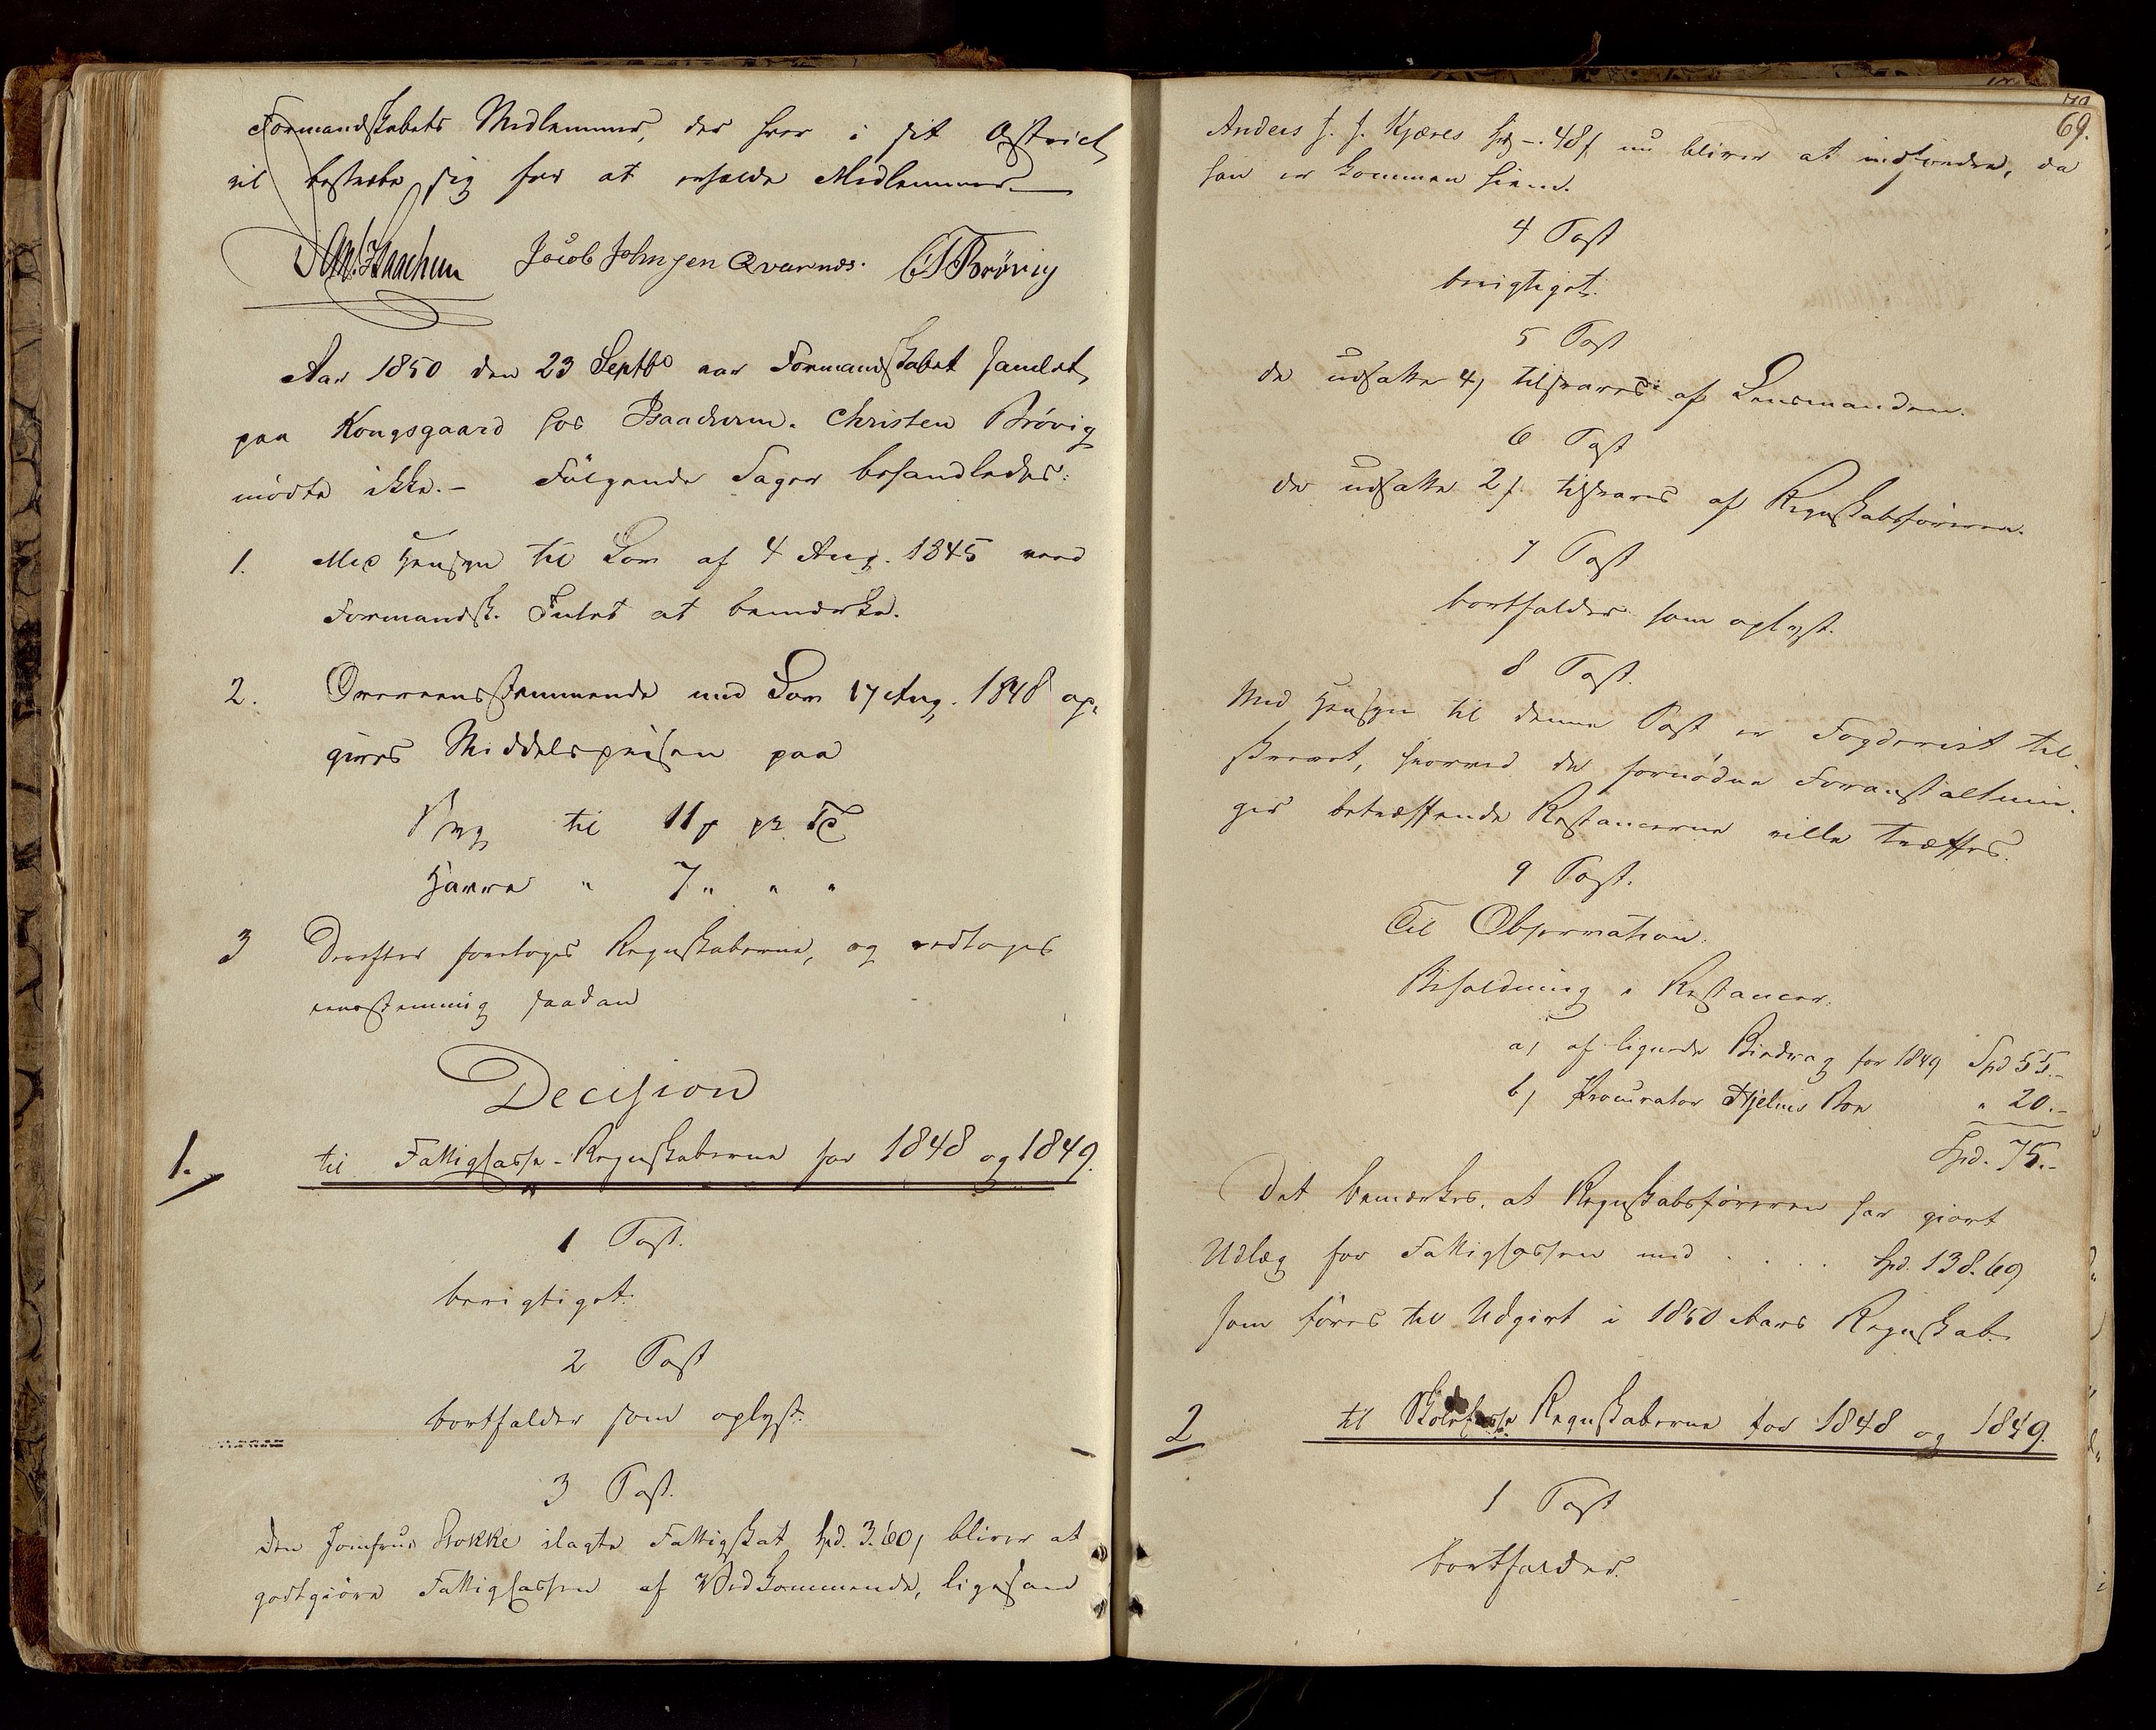 Formandskabets Medlemmer, der hver i sit District
vil bestræbe sig for at erholde Medlemmer.
Jacob Johnsen Qvarnes. C T Brövig
Aar 1850 den 23 Septbr var Formandskabet samlet
paa Kongsgaard hos Christen Brövig
mödte ikke. - Fölgende Sager behandledes:
1. Med Hensyn til Lov af 4 Aug. 1845 vred
Formandsk. Intet at bemærke.
2. Overeensstemmende med Lov 17 Aug. 1848 op-
gives Middelsprisen paa
Byg til 11 pr. Td
Havre " 7 " " "
3 Derefter foretoges Regnskaberne, og vedtoges
eenstemmig saadan
Decision
1. til Fattigkasse-Regnskaberne for 1848 og 1849.
1 Post.
berigtiget.
2 Post
bortfalder som oplyst.
3 Post.
Den Jomfrue Stokke ilagte Fattigskat Spd. 3.60, bliver at
godtgiöre Fattigkassen af Vedkommende, ligesom
69.
Anders J. J. Kjæres Spd -. 48 f nu bliver at indfordre, da
han er kommen hiem.
4 Post
berigtiget.
5 Post
de udsatte 4 f tilsvares af Lensmanden.
6 Post
de udsatte 2 f tilsvares af Regnskabsföreren.
7 Post
bortfalder som oplyst.
8 Post.
Med Hensyn til denne Post er Fogderiet til-
skrevet, hvorved de fornödne Foranstaltnin-
ger betræffende Restancerne ville træffes.
9 Post.
Til Observation.
Beholdning i Restancer.
a, af lignede Bidrag for 1849 Spd 55.-
b, Procurator Hjelms Boe " 20.-
Spd. 75.-
Det bemærkes, at Regnskabsföreren har giort
Udlæg for Fattigkassen med . . . . Spd. 138.69
som föres til Udgivt i 1850 Aars Regnskab.
2 til Skolekasse Regnskaberne for 1848 og 1849.
1 Post
bortfalder.